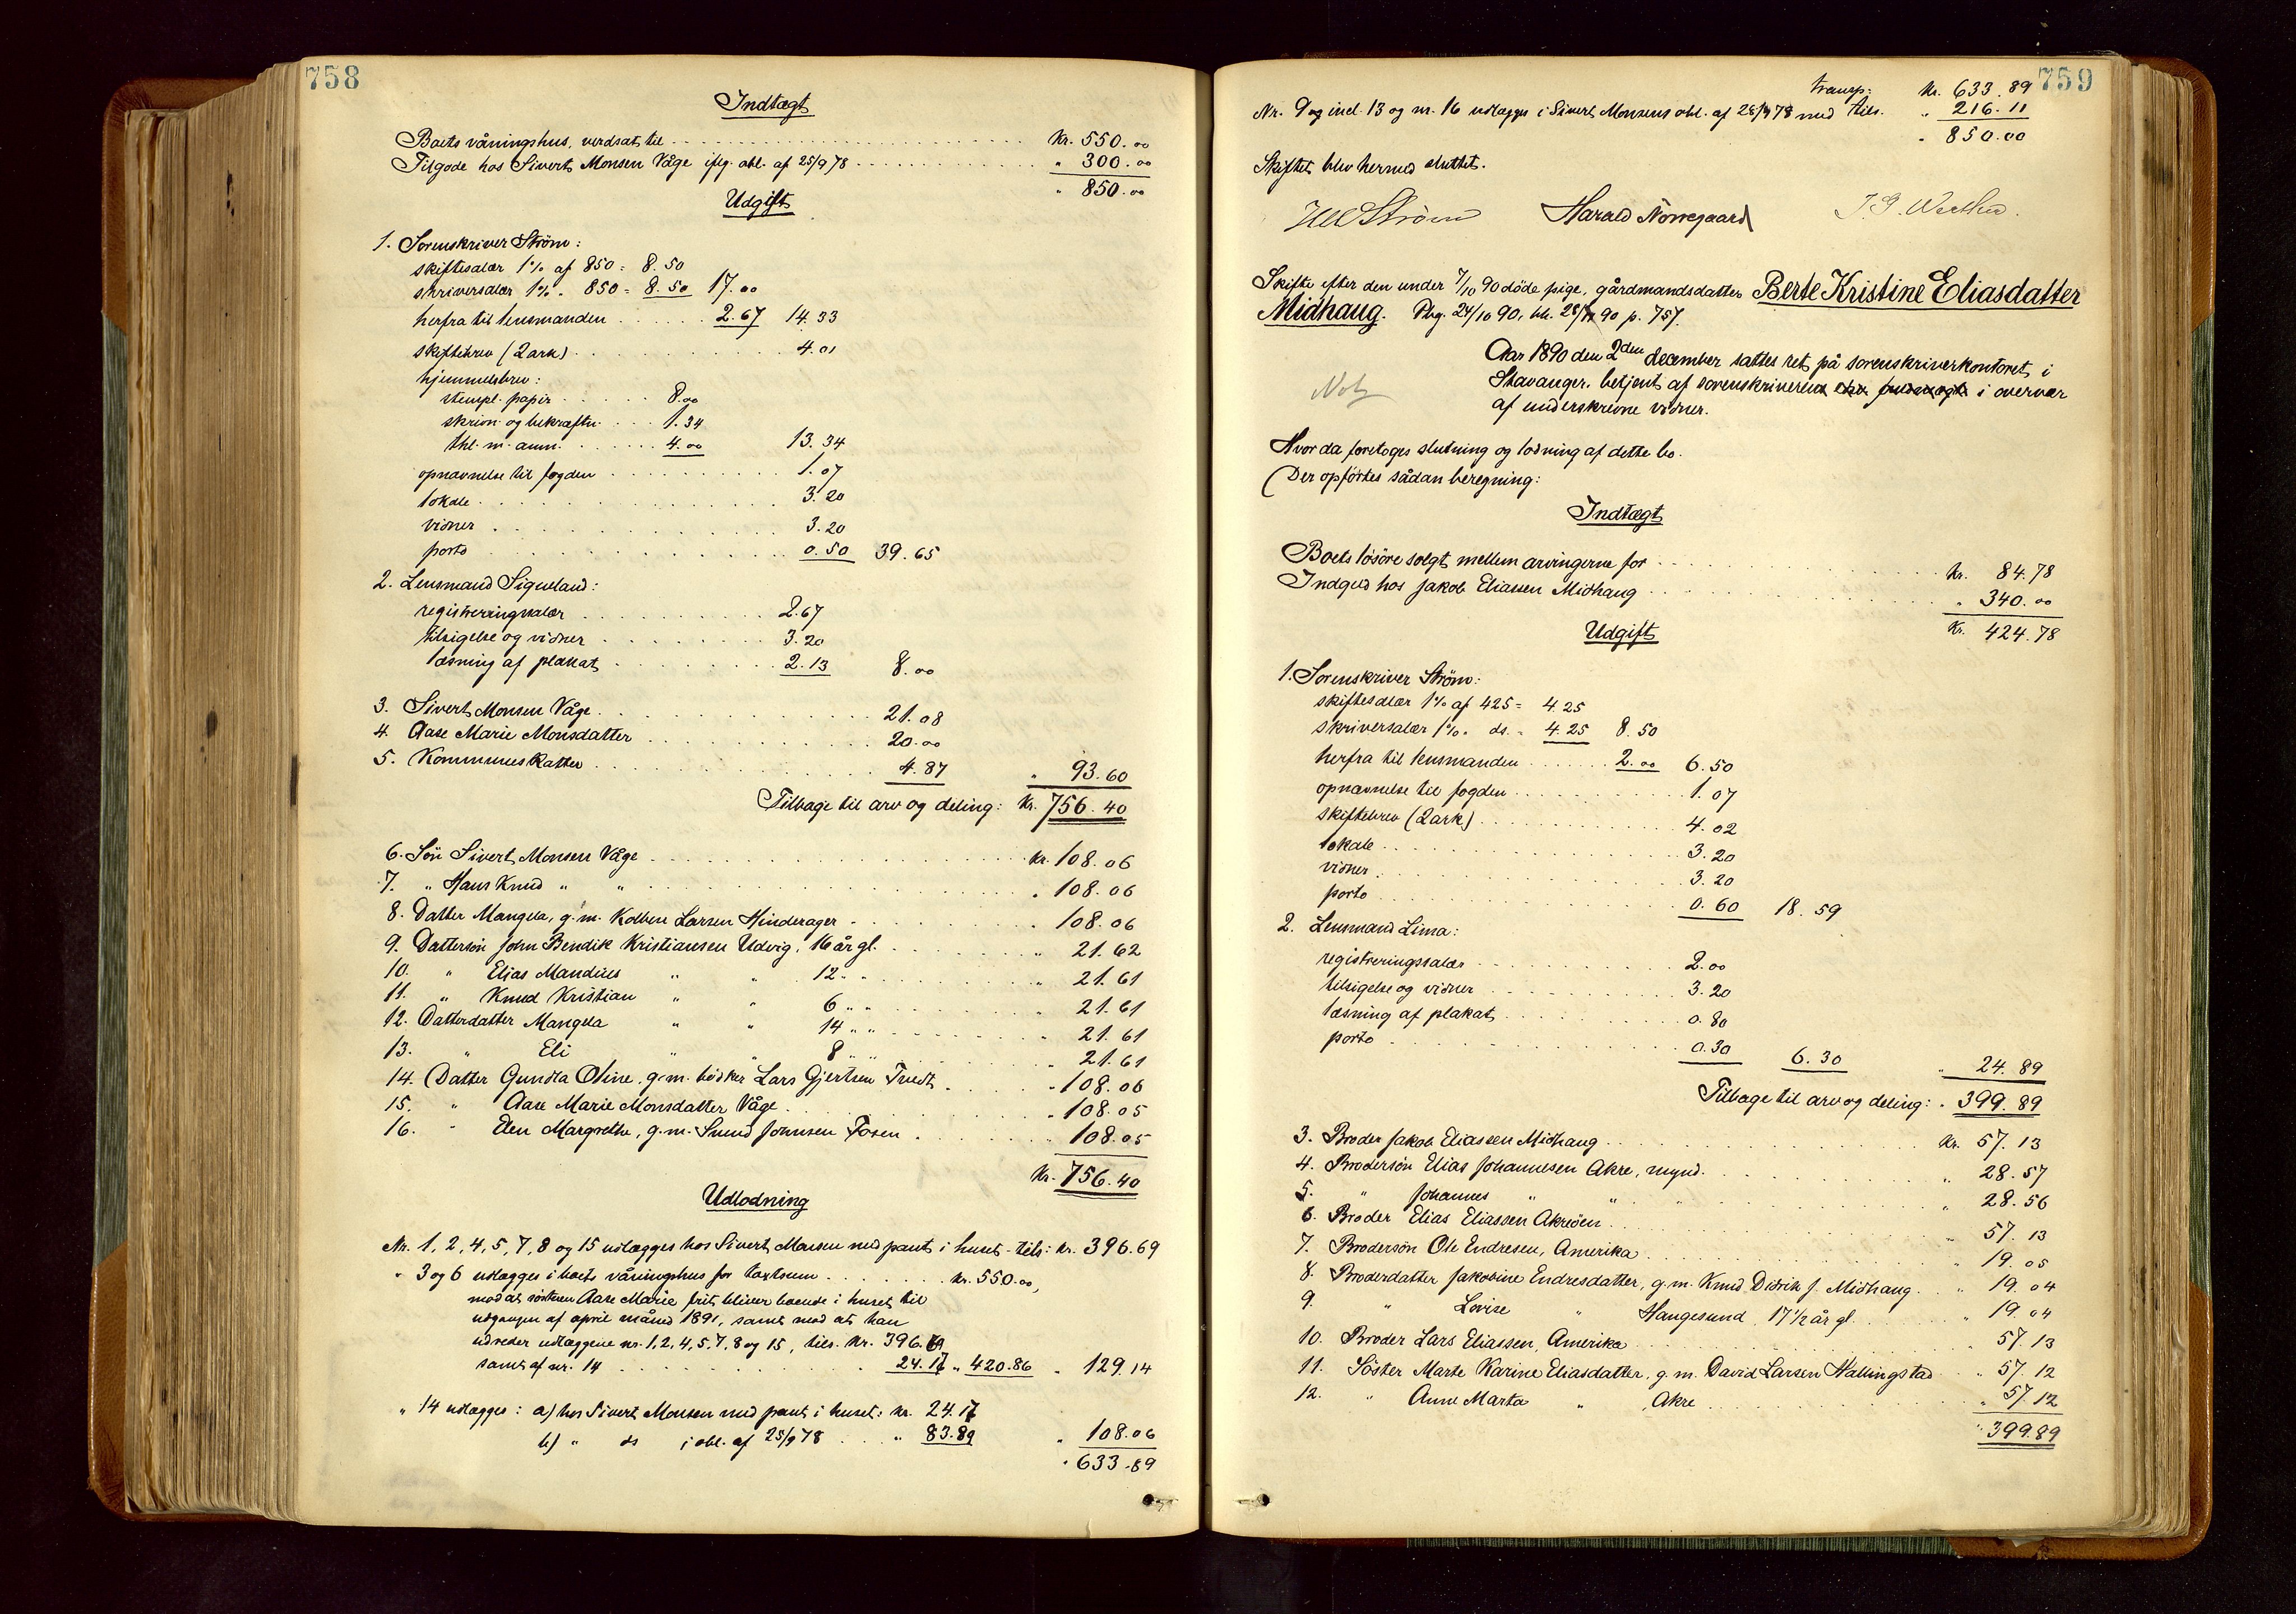 758
Indtægt
Boets våningshus, verdsat til . . . Kr. 550.00
Tilgode hos Sivert Monsen Våge iflg. obl. af 25/9 78 . . . " 300.00
" 850.00
Udgift
1. Sorenskriver Strøm:
skiftesalær 1% af 850 = 8.50
skriversalær 1% " 850 = 8.50 17.00
herfra til lensmanden . . . 2.67 14.33
skiftebrev (2 ark) . . . 4.01
hjemmelsbrev:
stempl. papir . . . 8.00
skrivn. og bekræftn. . . . 1.34
thl. m. anm. . . . 4.00 13.34
opnævnelse til fogden . . . 1.07
lokale . . . 3.20
vidner . . . 3.20
porto . . . 0.50 39.65
2. Lensmand Sigveland:
registreringssalær . . . 2.67
tilsigelse og vidner . . . 3.20
læsning af plakat . . . 2.13 8.00
3. Sivert Monsen Våge . . . 21.08
4. Aase Marie Monsdatter . . . 20.00
5. Kommuneskatter . . . 4.87 " 93.60
Tilbage til arv og deling: Kr. 756.40
6. Søn Sivert Monsen Våge . . . Kr. 108.06
7. " Hans Knud " " . . . " 108.06
8. Datter Mangela, g.m. Kolben Larsen Hinderager . . . " 108.06
9. Dattersøn John Bendik Kristiansen Udvig, 16 år gl. . . . " 21.62
10. " Elias Mandius " " 12 " " . . . " 21.61
11. " Knud Kristian " " 6 " " . . . " 21.61
12. Datterdatter Mangela " " 14 " " . . . " 21.61
13. " Eli " " 8 " " . . . " 21.61
14. Datter Gundla Oline, g.m. bødker Lars Gjertsen Tvedt . . . " 108.06
15. " Aase Marie Monsdatter Våge . . . " 108.05
16. " Elen Margrethe, g.m. Svend Johnsen Fosen . . . " 108.05
Kr. 756.40
Udlodning
Nr. 1, 2, 4, 5, 7, 8 og 15 udlægges hos Sivert Monsen med pant i huset - tils: Kr. 396.69
" 3 og 6 udlægges i boets våningshus for taxtsum . . . Kr. 550.00,
mod at søsteren Aase Marie frit bliver boende i huset til
udgangen af april måned 1891, samt mod at han
udreder udlæggene nr. 1, 2, 4, 5, 7, 8 og 15, tils. Kr. 396.69
samt af nr. 14 . . . 24.17 " 420.86 " 129.14
" 14 udlægges: a) hos Sivert Monsen med pant i huset: Kr. 24.17
b) " ds i obl. af 25/9 78 . . . " 83.89 " 108.06
" 633.89
759
transp: Kr. 633.89
Nr. 9 og incl. 13 og nr. 16 udlægges i Sivert Monsens obl. af 25/9 78 med tils. " 216.11
" 850.00
Skiftet blev hermed sluttet.
Strøm Harald Norregaard
Skifte efter den under 7/10 90 døde pige, gårdmandsdatter Berte Kristine Eliasdatter
Midhaug. Pbg. 24/10 90, bb. 28/11 90 p. 757.
Aar 1890 den 2den december sattes ret på sorenskriverkontoret i
Stavanger, betjent af sorenskriveren i overvær
af underskrevne vidner.
Not
Hvor da foretoges slutning og lodning af dette bo.
Der opførtes sådan beregning:
Indtægt
Boets løsøre solgt mellem arvingerne for . . . Kr. 84.78
Indgjæld hos Jakob Eliassen Midhaug . . . " 340.00
Kr. 424.78
Udgift
1. Sorenskriver Strøm:
skiftesalær 1% af 425 = 4.25
skriversalær 1% " ds. = 4.25 8.50
herfra til lensmanden . . . 2.00 6.50
opnævnelse til fogden . . . 1.07
skiftebrev (2 ark) . . . 4.02
lokale . . . 3.20
vidner . . . 3.20
porto . . . 0.60 18.59
2. Lensmand Lima:
registreringssalær . . . 2.00
tilsigelse og vidner . . . 3.20
læsning af plakat . . . 0.80
porto . . . 0.30 6.30 " 24.89
Tilbage til arv og deling: " 399.89
3. Broder Jakob Eliassen Midhaug . . . Kr. 57.13
4. Brodersøn Elias Johannesen Akre, mynd. . . . " 28.57
5. " Johannes " " " . . . " 28.56
6. Broder Elias Eliassen Akreøen . . . " 57.13
7. Brodersøn Ole Endresen, Amerika . . . " 19.05
8. Broderdatter Jakobine Endresdatter, g.m. Knud Didrik J. Midhaug . . . " 19.04
9. " Lovise " Haugesund, 17 1/2 år gl. . . . " 19.04
10. Broder Lars Eliassen, Amerika . . . " 57.13
11. Søster Marte Karine Eliasdatter, g.m. David Larsen Hallingstad . . . " 57.12
12. " Anne Marta " , Akre . . . " 57.12
" 399.89